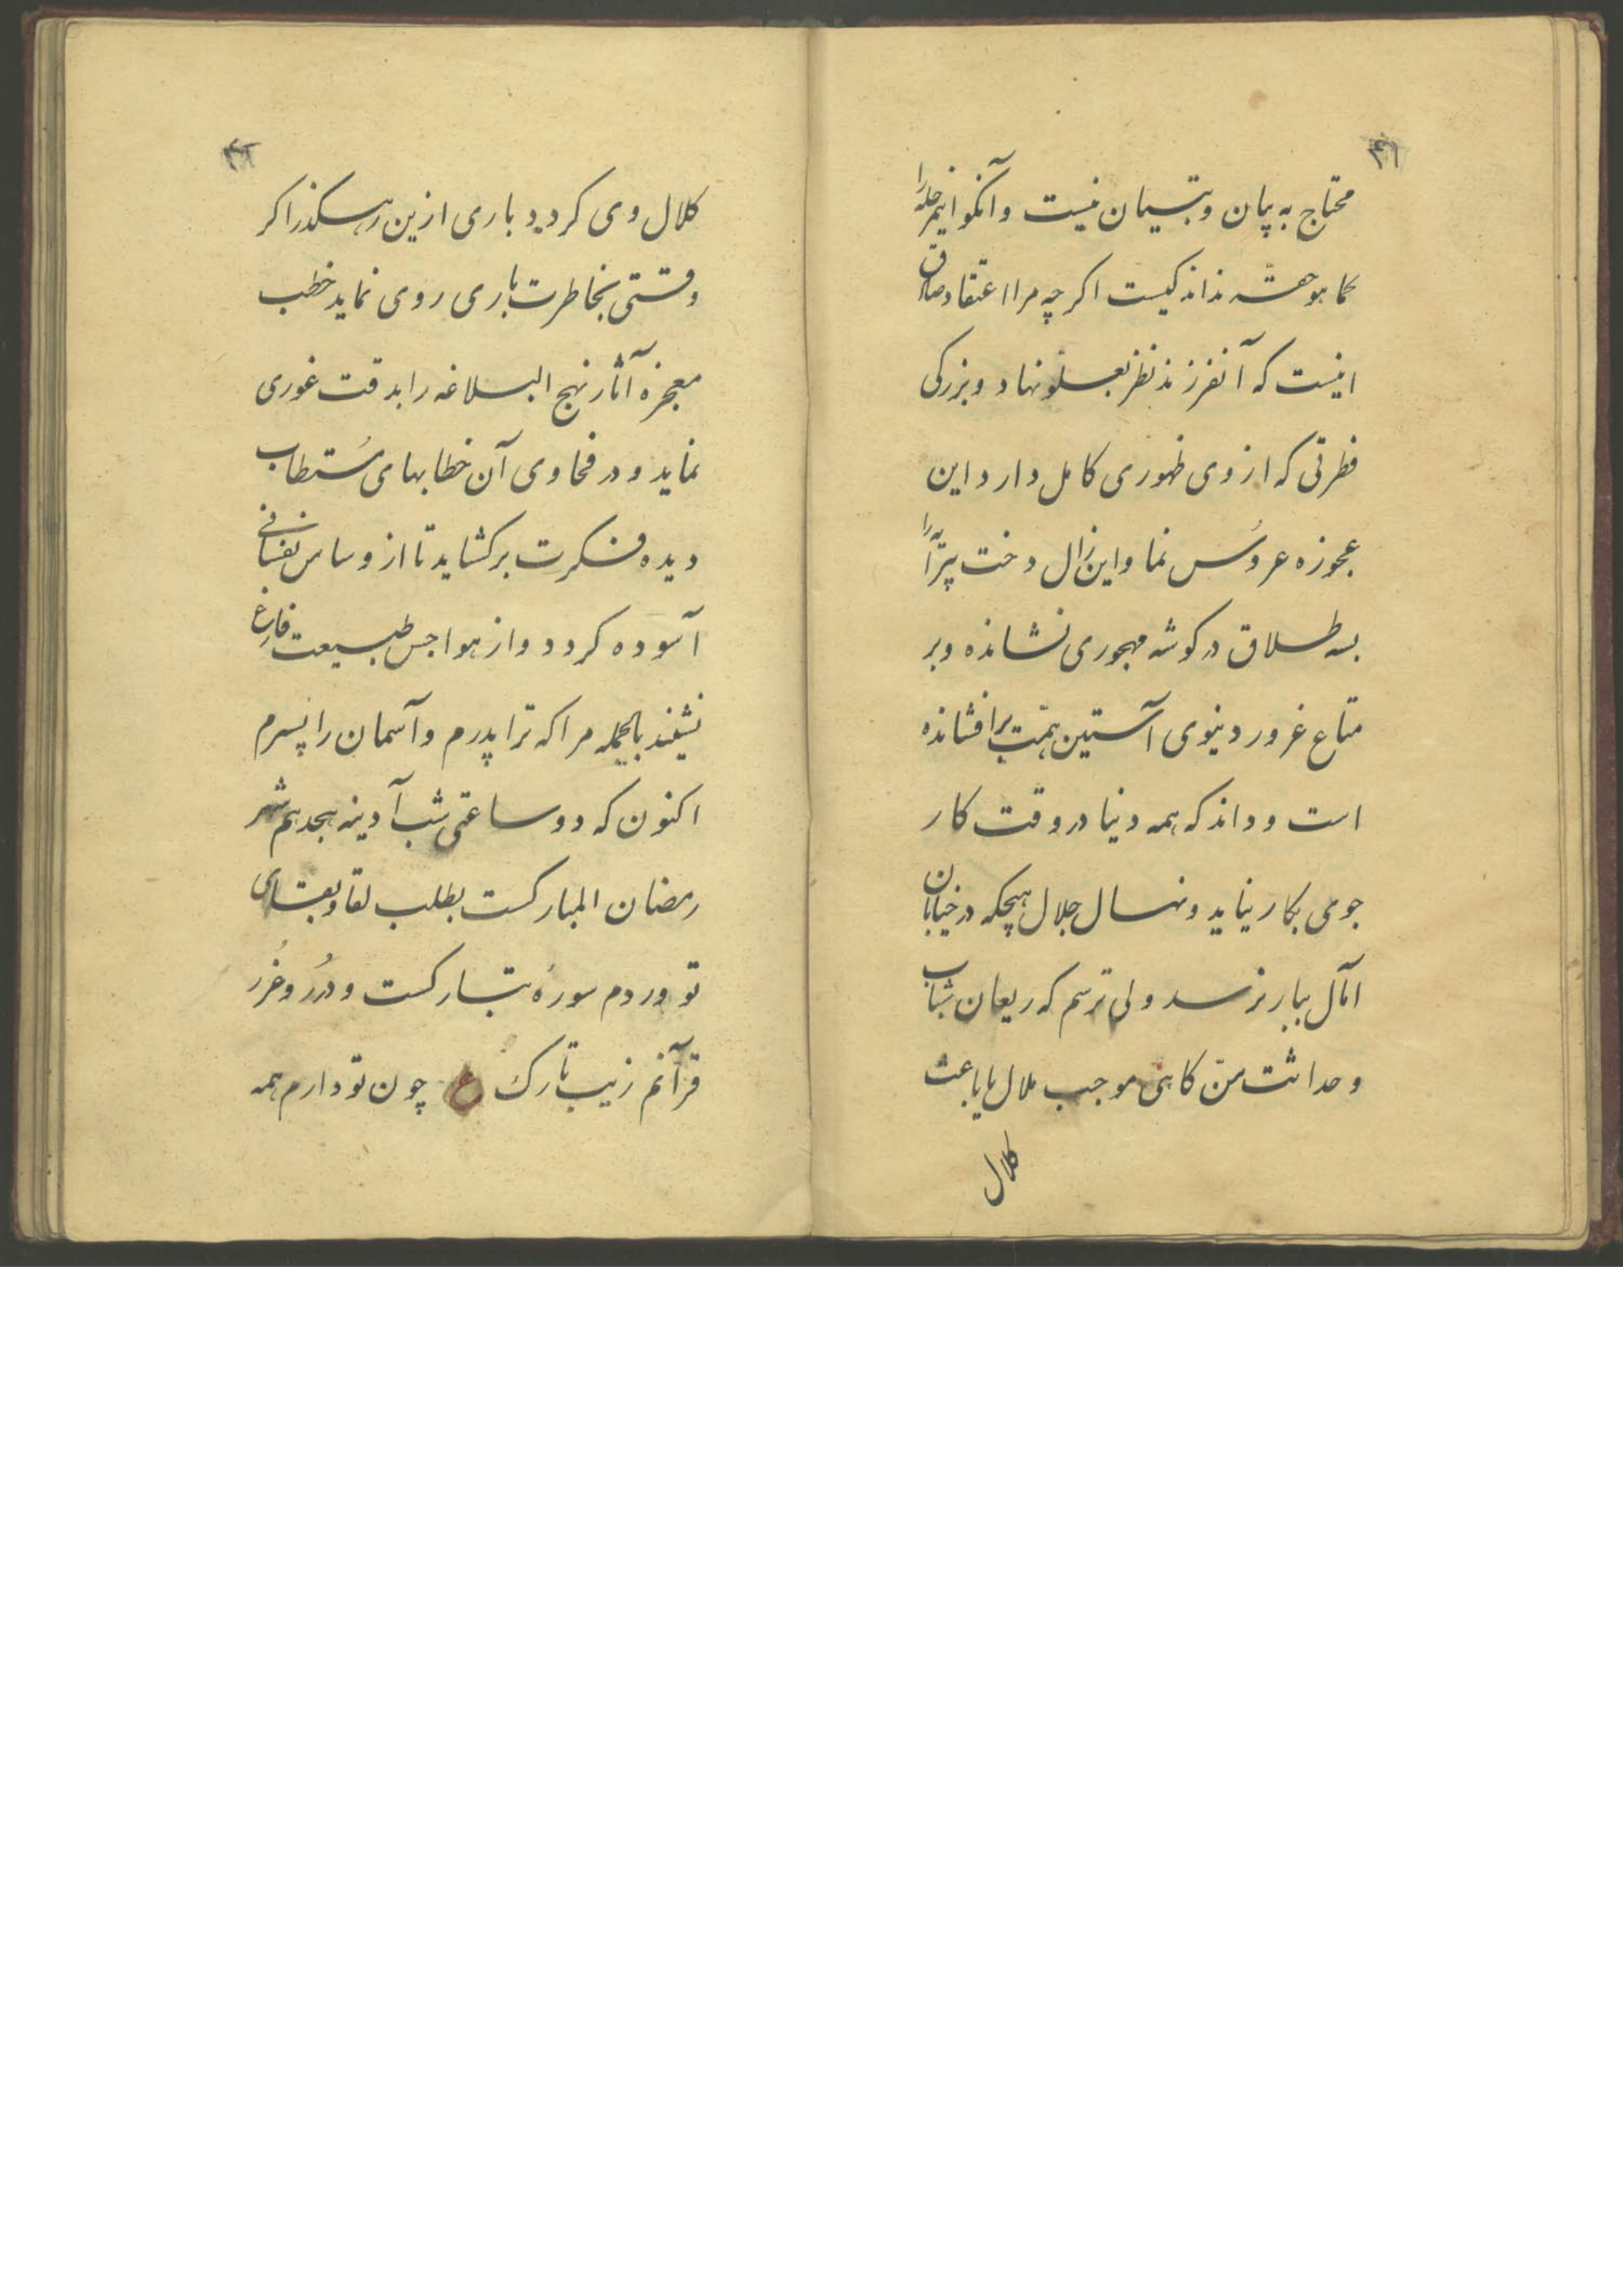 ۳۱
محتاج به بیان و تبیان نیست و آنکو اینجمله را
کما هو حقه نداند کیست اکر چه مرا اعتقاد صادق
اینست که آنفرزند نظر بعلو نهاد و بزرکی
فطرتی که از وی ظهوری کامل دارد این
عجوزه عروس نما و این زال دخت پیرا را
بسه طلاق در کوشه مهجوری نشانده و بر
متاع غرور دنیوی آستین همّت برافشانده
است و داند که همه دنیا در وقت کار
جوی بکار نیاید و نهال جلال هیچکه در خیابان
آمال ببار نرسد ولی ترسم که ریعان شباب
و حداثت سنّ کاهی موجب ملال یا باعث
کلال
۳۲
کلال وی کردد باری ازین رهکذر اکر
وقتی بخاطرت باری روی نماید خطب
معجزه آثار نهج البلاغه را بدقت غوری
نماید و در فحاوی آن خطابهای مُستطاب
دیده فکرت برکشاید تا از وساس نفسانی
آسوده کردد و از هواجس طبیعت فارغ
نشیند بالجمله مرا که ترا پدرم و آسمان را پسرم
اکنون که دو ساعتی شب آدینه هجدهم شهر
رمضان المبارکست بطلب لقا و بقای
تو وردم سورهٔ تبارکست و دُرر و غُرر
قرآنم زیب تارک ع چون تو دارم همه